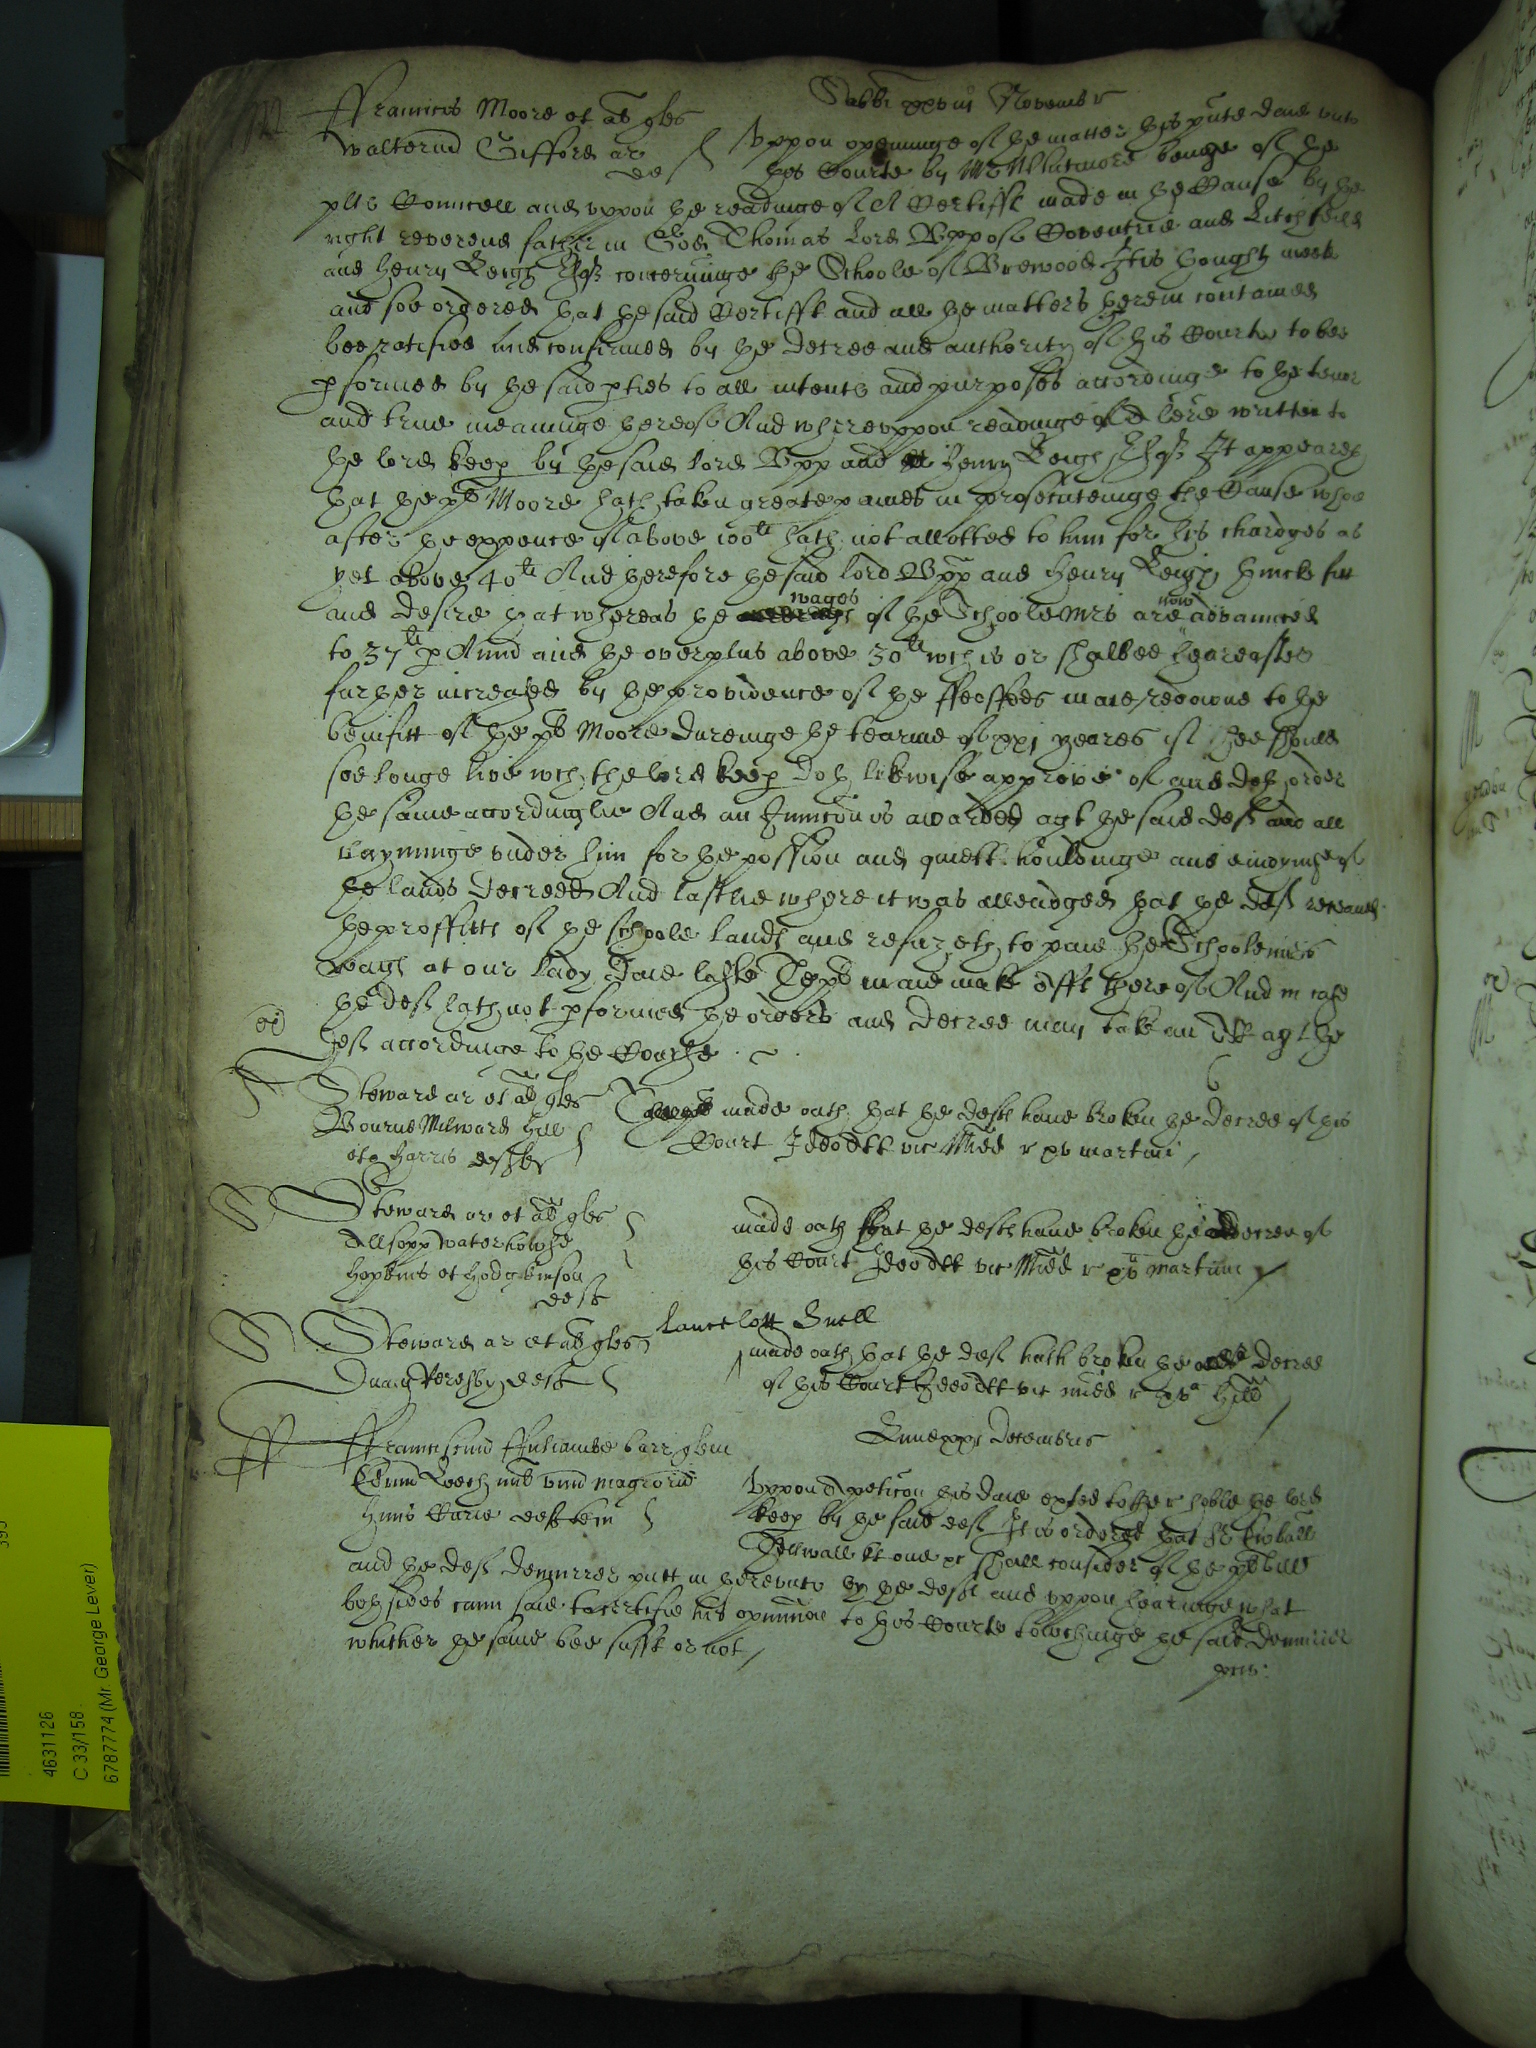 Sabbi xxviii Novembr
Franciscus Moore et al ples
Walterum Gifford ar
def
Uppon openinge of the matter this pnte daie unto
this Courte by Mr Whitmore beinge of the
plts Councell and uppon the readinge of A Certifft made in the Cause by the
right reverend father in God Thomas Lord Bppose Coventrie and Litchfeild
and Henry Leigh Esqr concerninge the Schoole of Brewood It is thought meete
and soe ordered that the said Certifft and all the matters therein contained
bee ratified and confirmed by the decree and authority of this Courte to bee
pformed by the said pties to all intents and purposes accordinge to the tenor
and true meaninge thereof And whereuppon readinge of the lre written to
the lord keep by the said Lord Bpp and Henry Leigh Esqr It appeareth
that the pl Moore hath taken greate paines in prosecuteinge the Cause whoe
after the expence of above 100li hath not allotted to him for his chardges as
yet above 40li And therefore the said lord Bpp and Henry Leigh thincke fitt
and desire that whereas the wages of the Schoolemrs are now advanced
to 37li p Annu and the overplus above 30li wch is or shalbee hereafter
further increased by the providence of the ffeoffees maie redowne to the
benifitt of the pl Moore dureinge the tearme of xxi yeares if hee should
soe longe live wch the lord keep doth likewise approve of and doth order
the same accordinglie And an Iniunccon is awarded agt the said deft and all
clayminge under him for the possion and quiett houldinge and enioyinge of
the lands decreed And lastlie where it was alleadged that the deft receaveth
the proffitts of the schoole lands and refuzeth to paie the Schoolemrs
wages at our Lady daie laste The pl maie make afft thereof And in case
the deft hath not pformed the orders and decree may take an Att agt the
deft accordinge to the Course
Steward ar et al ples
Bourne Milward Hill
et Harris defts
made oath that the defts have broken the decree of this
Court Ideo Att vic Midd r xv Martini
Steward ar et al ples
Allsopp Waterhowse
Hopkins et Hodgkinson
defts
made oath that the defts have broken the decree of
this Court Ideo Att vic Midd r xv Martini
Steward ar et al ples
deft
Lancelott Snell
made oath that the deft hath broken the decree
of this Court Ideo Att vic Midd r xva Hill
Lune xxx Decembris
Franciscum ffuliambe barr plem
Edrum Leech
deftem
Uppon A peticon this daie exhted to the r hoble the lord
keep by the said deft It is ordered that
Thelwall kt one &c shall consider of the pl bill
and the deft demurrer putt in thereunto by the deft and uppon hearinge what
both sides cann saie to certifie his opinnion to this Courte towchinge the said demurrer
whither the same bee sufft or not
4631126
C 33/158
6787774 (Mr. George Lever)